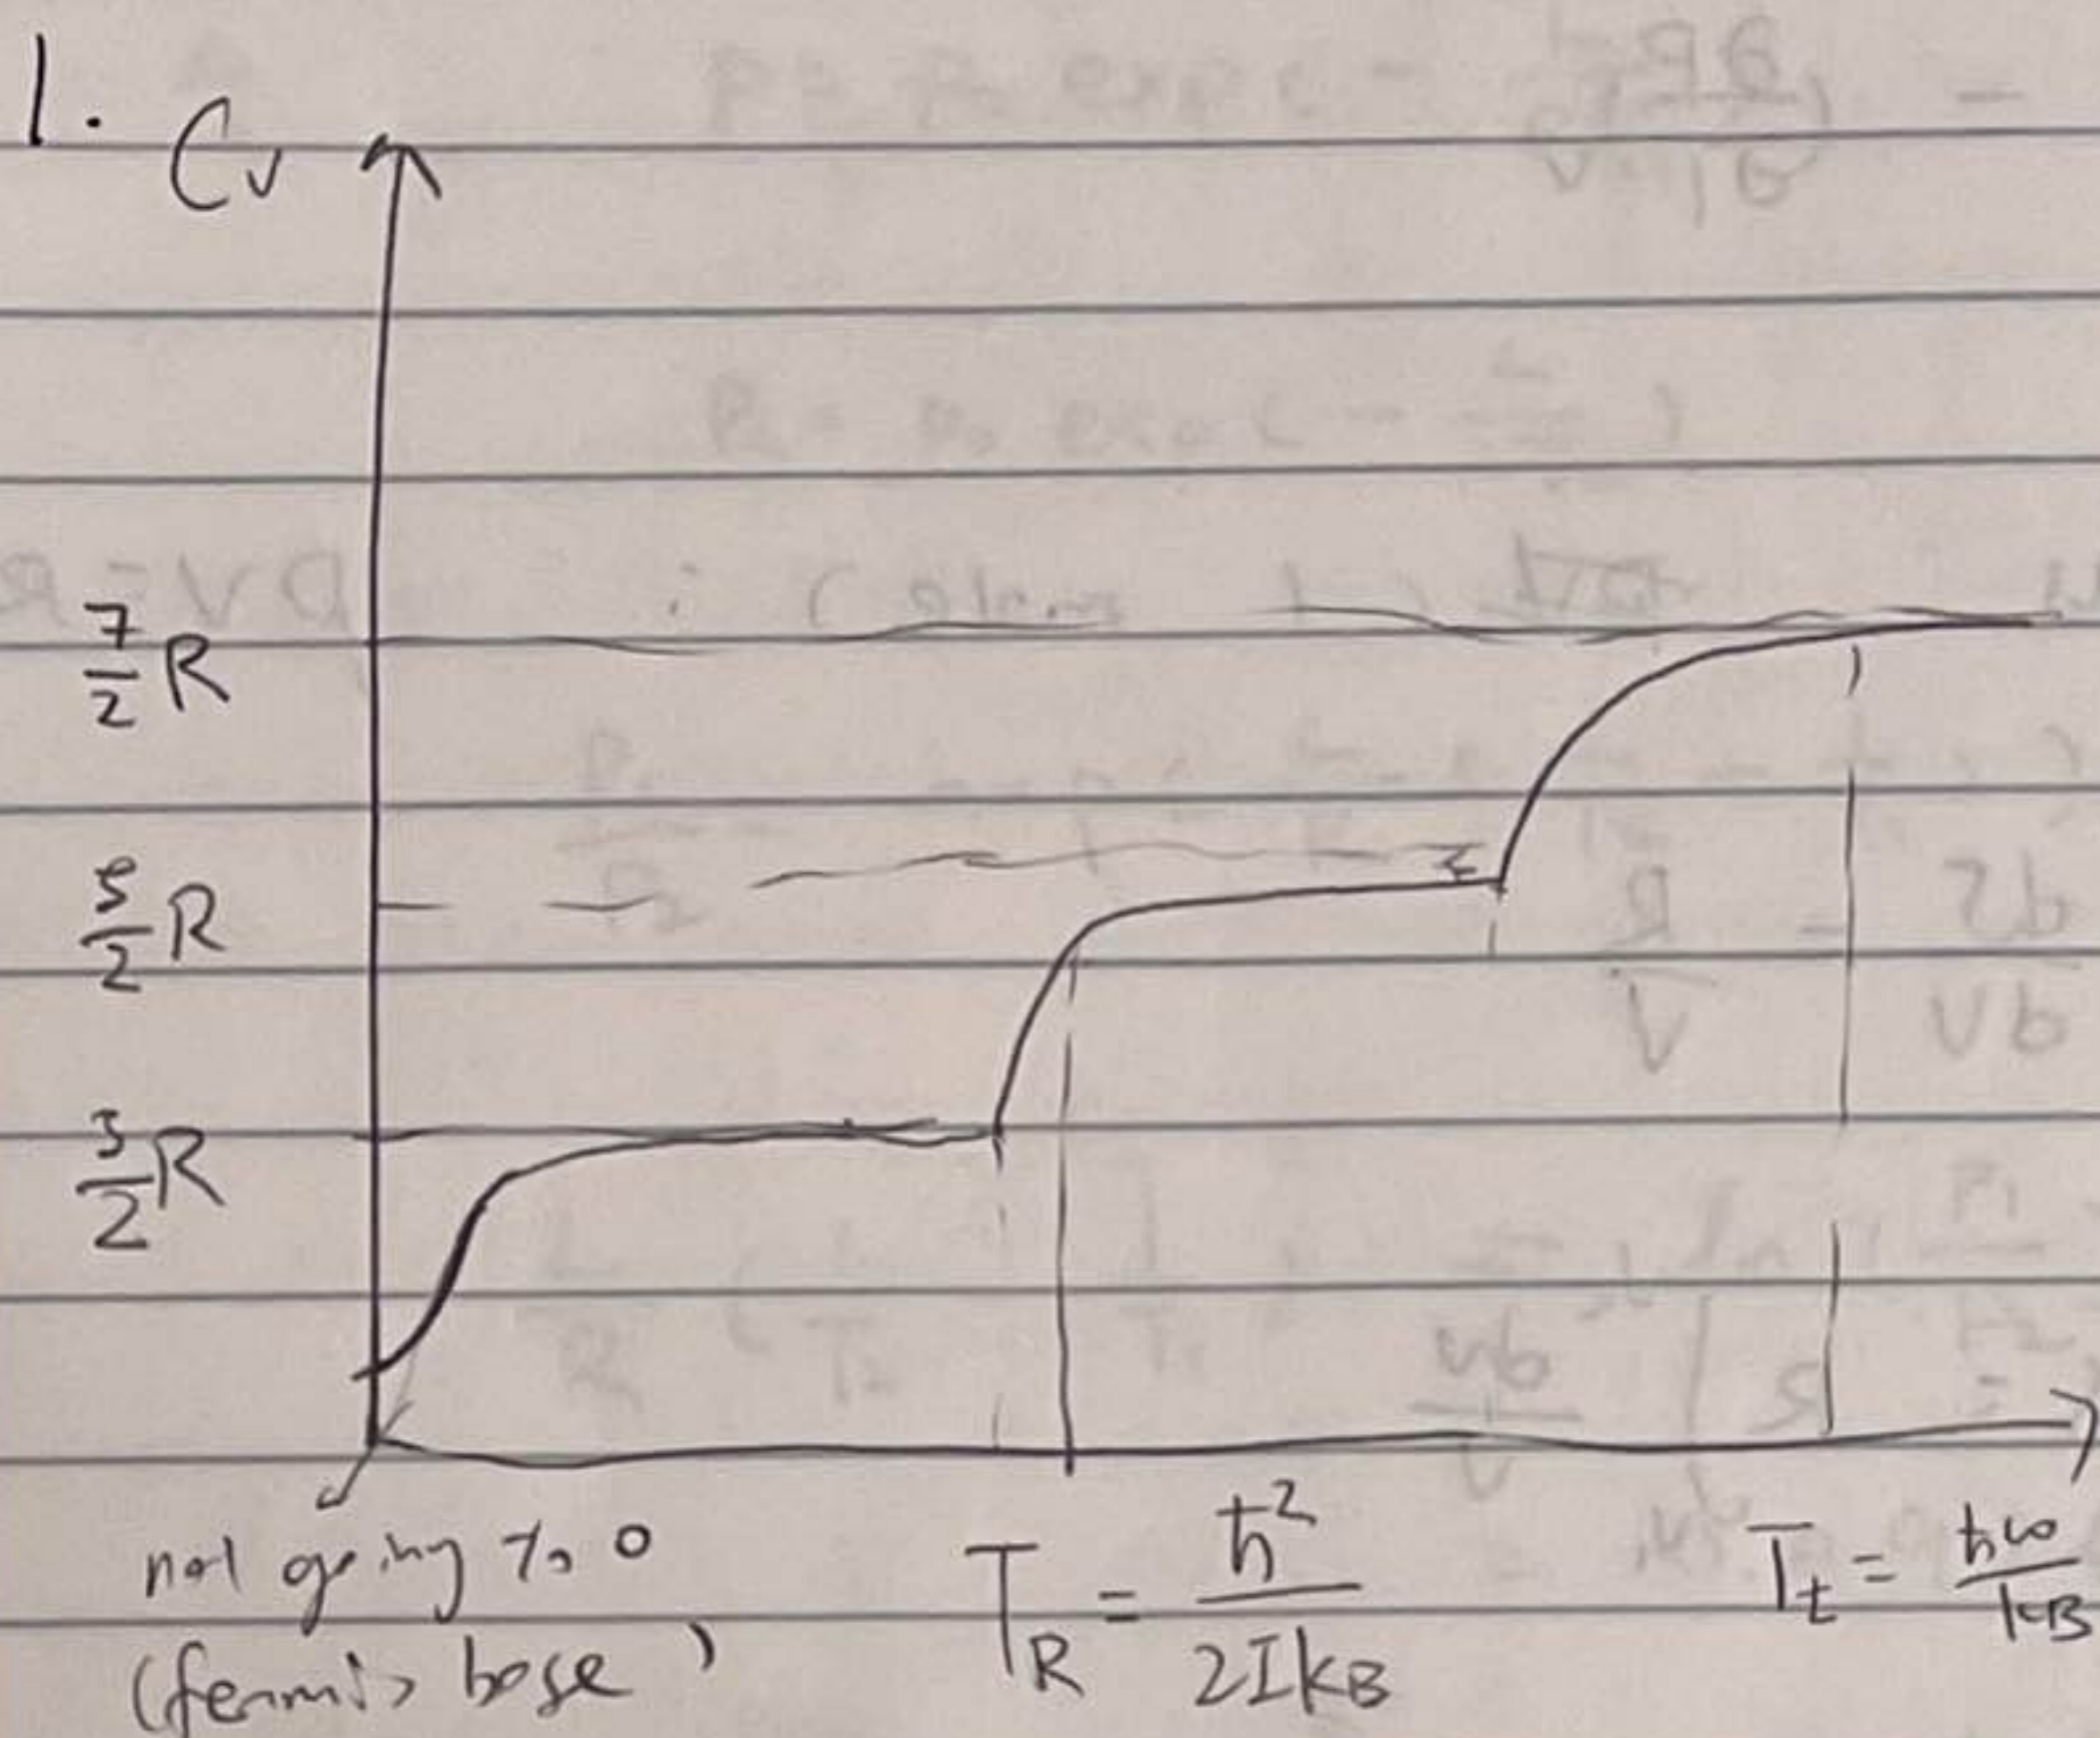 1.
Cv
7/2 R
5/2 R
3/2 R
not going to 0
(fermi, bose)
T_R = ħ²/2IkB
T_t = ħω/kB